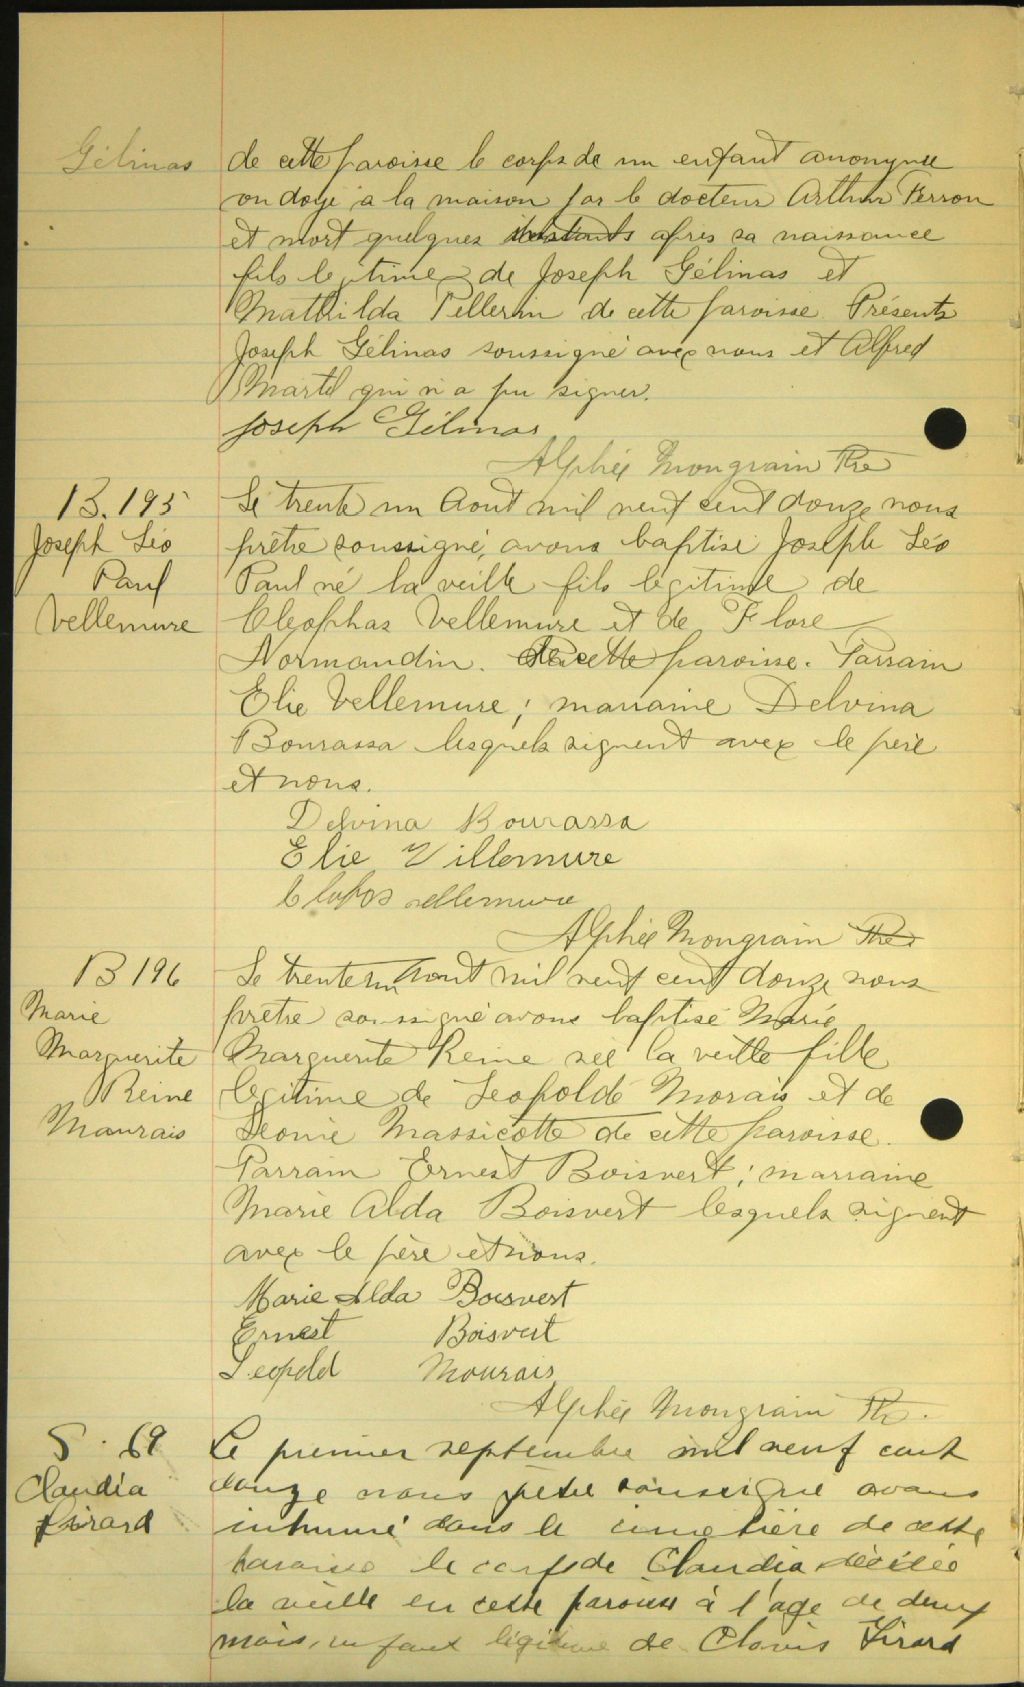 Gélinas
de cette paroisse le corps de un enfant anonyme
ondoyé à la maison par le docteur Arthur Ferron
et mort quelques instants après sa naissance
fils légitime de Joseph Gélinas et
Mathilda Pellerin de cette paroisse. Présents
Joseph Gélinas soussigné avec nous et Alfred
Martel qui n'a pu signer.
Joseph Gélinas
Alphée Mongrain Ptre
B. 195
Joseph Léo
Paul
Vellemure
Le trente un Aout mil neuf cent douze nous
prêtre soussigné, avons baptisé Joseph Léo
Paul né la veille fils légitime de
Cléophas Vellemure et de Flore
Normandin. de cette paroisse. Parrain
Elie Vellemure; marraine Delvina
Bourassa lesquels signent avec le père
et nous.
Delvina Bourassa
Elie Villemure
Clefos vellemure
Alphée Mongrain Ptre
B 196
Marie
Marguerite
Reine
Maurais
Le trente un Aout mil neuf cent douze nous
prêtre soussigné avons baptisé Marie
Marguerite Reine née la veille fille
légitime de Léopold Morais et de
Léonie Massicotte de cette paroisse.
Parrain Ernest Boisvert; marraine
Marie Alda Boisvert lesquels signent
avec le père et nous.
Marie Alda Boisvert
Ernest Boisvert
Leopold Mourais
Alphée Mongrain Ptr.
S. 69
Claudia
Girard
Le premier septembre mil neuf cent
douze nous prêtre soussigné avons
inhumé dans le cimetière de cette
paroisse le corps de Claudia décédée
la veille en cette paroisse à l'age de deux
mois, enfant légitime de Clovis Girard